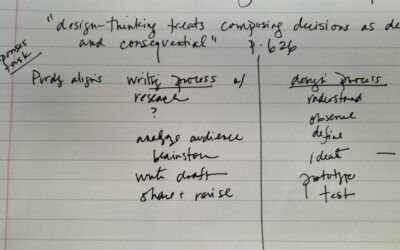 "design-thinking treats composing decisions as de
and consequential" p. 626
task
Purdy aligns writing process w/ design process
research understand
? observe
analyze audience define
brainstorm ideate —
write draft prototype
share + revise test